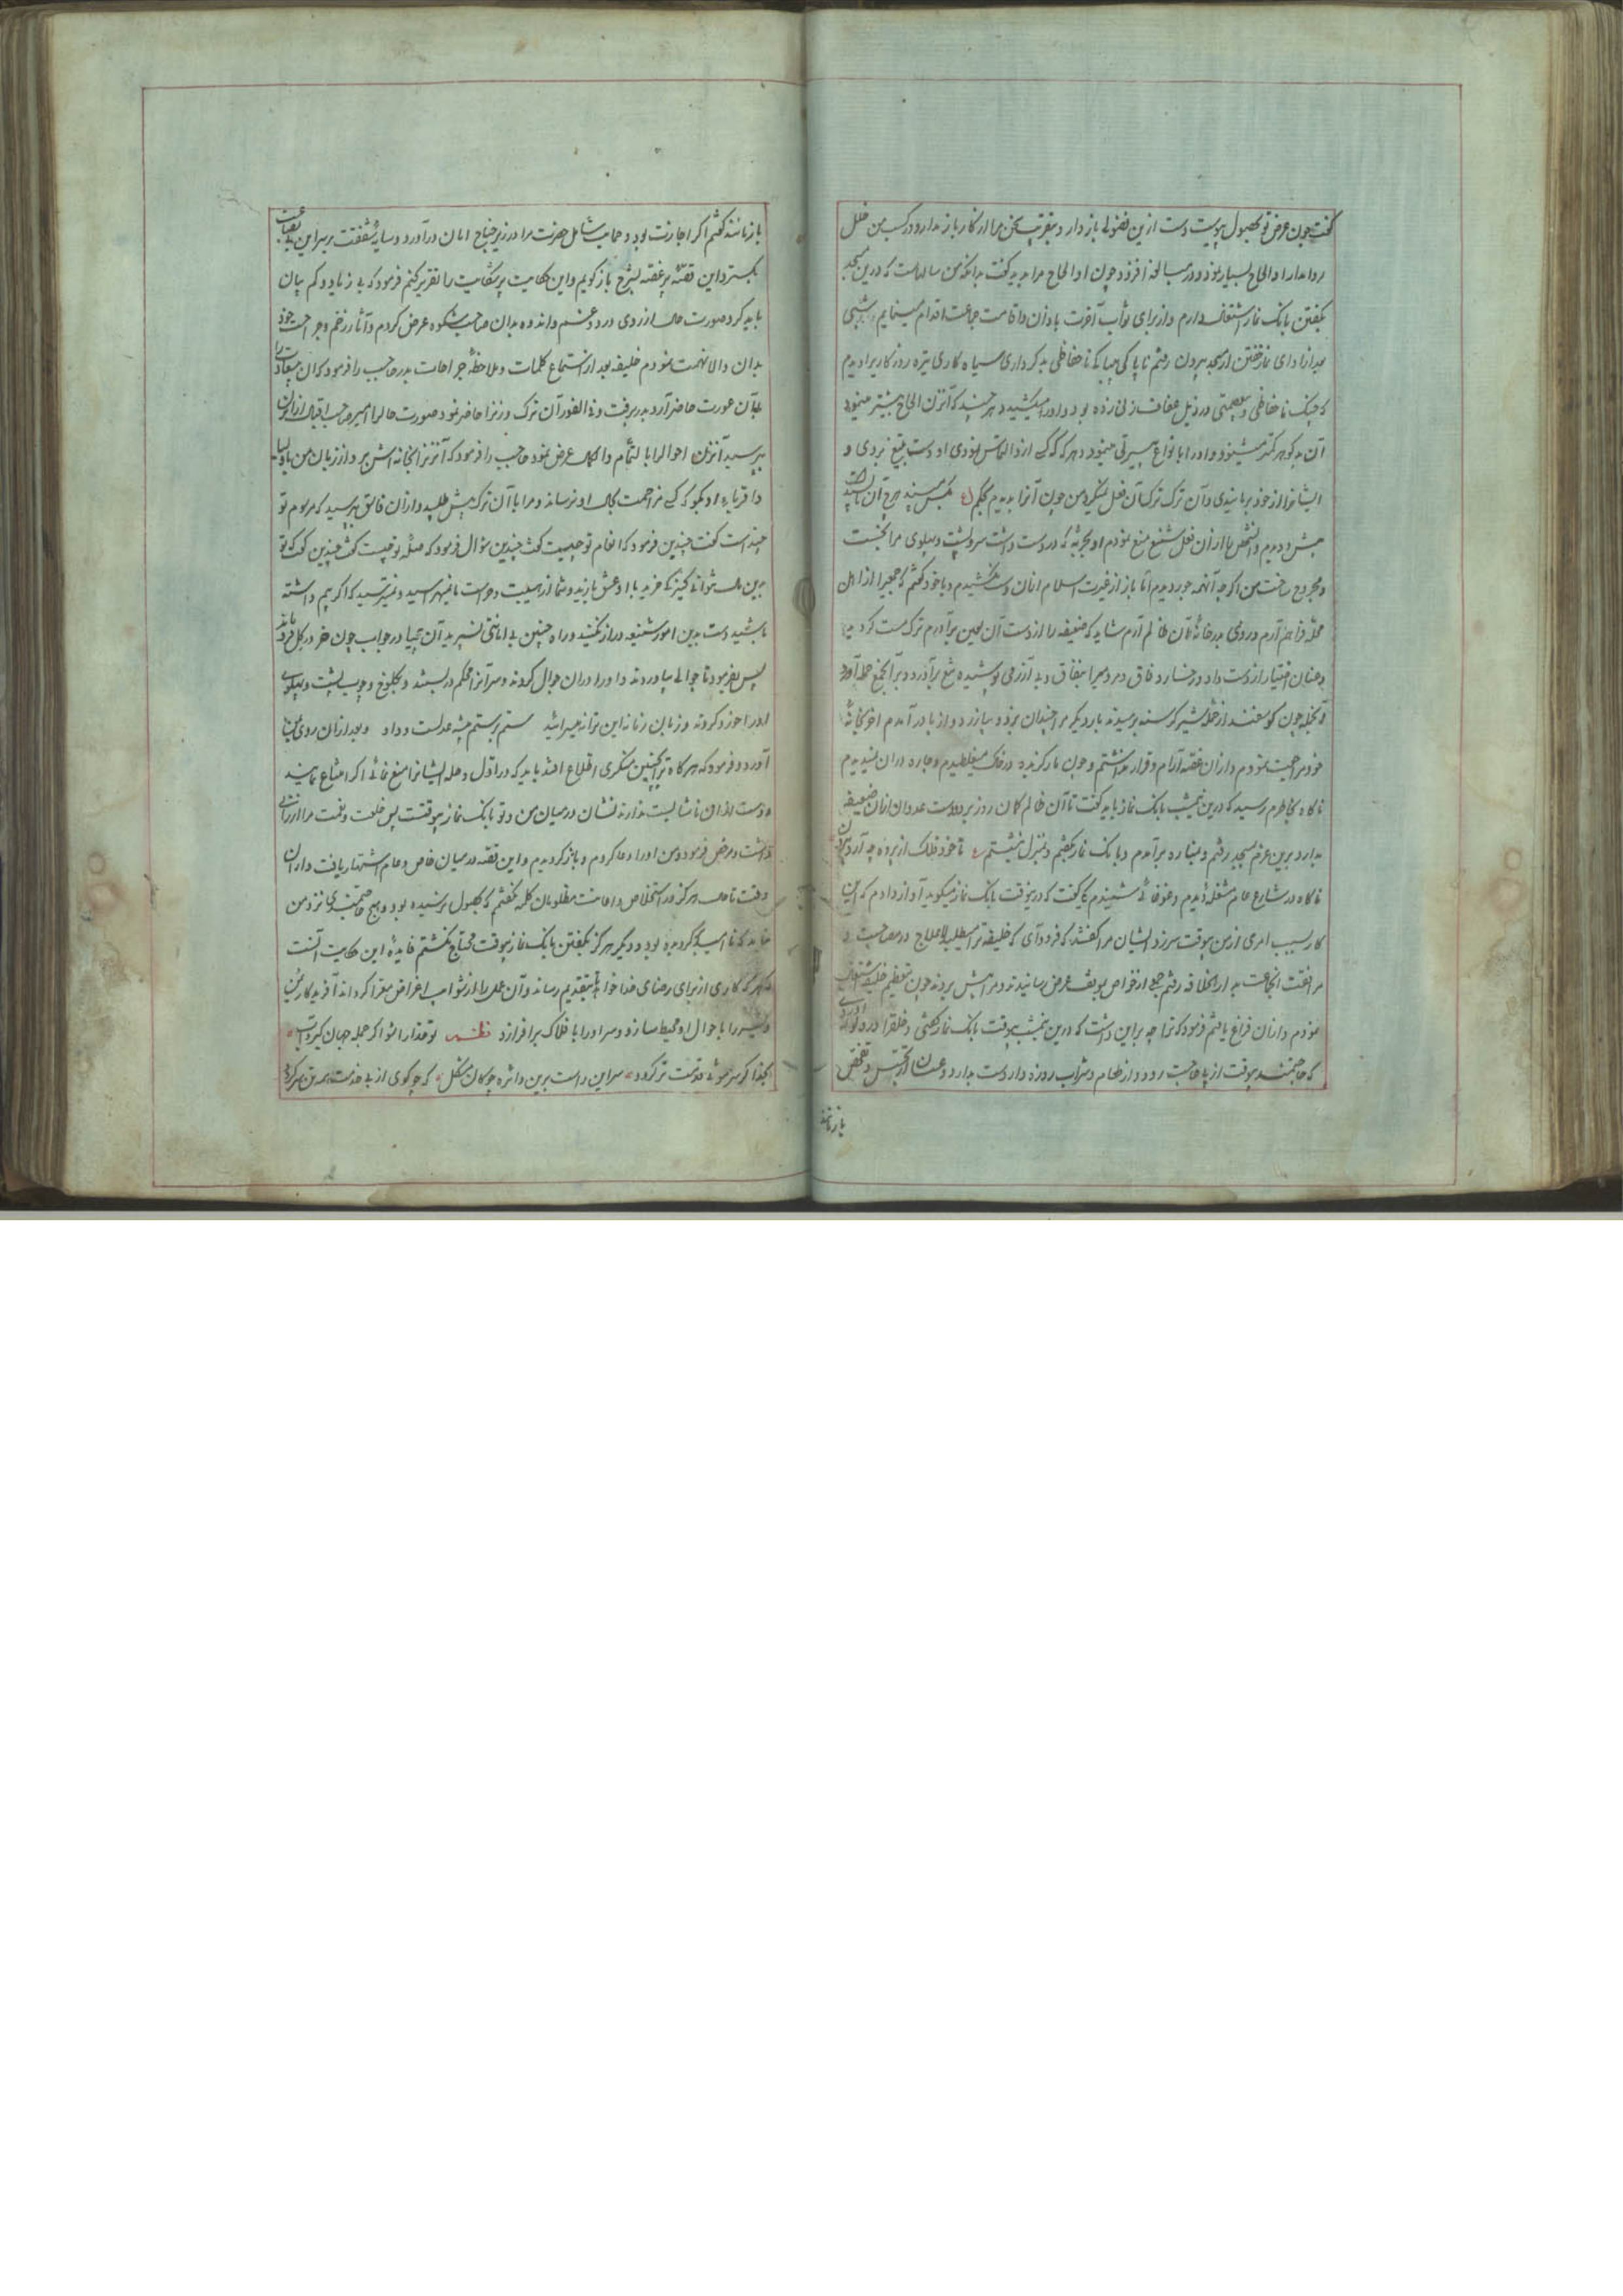 گفت چون غرض تو بحصول پیوست دست ازین فضولی باز دار و بتقریب سخن مرا از کار باز مدار و در کسب من خلل
روا مدار او الحاح بسیار نمود و در مبالغه افزود چون او الحاح مرا بدید گفت بدانکه من سالهاست که درین مسجد
بگفتن بانک نماز اشتغال دارم و از برای ثواب آخرت باذان و اقامت جماعت اقدام مینمایم شبی
بعد از ادای نماز خفتن از مسجد بیرون رفتم ناپاکی بیباکی ناحفاظی بدکرداری سیاه کاری تیره روزکاری را دیدم
که چنگ ناحفاظی و بیعصمتی در ذیل عفاف زنی زده بود و او را میکشید و هر چند که آن زن الحاح بیشتر مینمود
آن بدکوهر کمتر میشنود و او را بانواع میرنجانید و هر که از و التماس نمودی او دست بتیغ بردی و
ایشانرا از خود برمانیدی و آن ترک ترک آن فعل نمیکرد من چون آنرا بدیدم بحکم
پیش دویدم و آن شخص را از آن فعل شنیع منع نمودم او بحربهٔ که در دست داشت سر و پشت و پهلوی مرا بخست
و مجروح ساخت من اکرچه آنهمه جور دیدم اما باز از غیرت اسلام امان دست نکشیدم و با خود کفتم که جمعی را از اهل
محله فراهم آرم و روی بدر خانهٔ آن ظالم آرم شاید که ضعیفه را از دست آن لعین برآورم ترک مست کرده
و عنان اختیار از دست داده رخساره وقاحت در میان نفاق و بی آزرمی پوشیده تیغ برآورد و بر آن جمع حمله آورد
و همه چون کوسفند از حملهٔ شیر کرسنه برمیدند بار دیکر مرا چندان بزد و بیازرد و از پا درآمدم آخر بخانهٔ
خود مراجعت نمودم و از آن غصه آرام و قرار نداشتم و چون مار کزیده در خاک میغلطیدم و چاره در آن نمیدیدم
ناکاه بخاطرم رسید که درین نیمشب بانک نماز باید کفت تا آن ظالم کمان روز برد و دست عدوان از آن ضعیفه
بدارد برین عزم بمسجد رفتم و بمناره برآمدم و بانک نماز بکفتم و بمنزل نشستم تا خود فلک از پرده چه آرد بیرون
ناکاه در شارع عام مشغله دیدم و غوغائی شنیدم که میکفت که درینوقت بانک نماز میکوید آواز دادم که این
کار بسبب امری از من بیوقت سر زد ایشان مرا کفتند که فرود آی که خلیفه ترا میطلبد لاعلاج در مصاحبت و
مرافقت آنجماعت بدارالخلافه رفتم جمعی از خواص بموقف عرض رسانیدند و مرا پیش بردند چون بتعظیم خلیفه اشتغال
نمودم و از آن فراغ یافتم فرمود که ترا چه بر این داشت که درین نیمشب بیوقت بانک نماز کفتی و خلقرا در
که حاجتمند بیوقت از پا حاجت رود و از طعام و شراب روزه دار دست بدارد و عسسان از تجسس و تفحص
بازمانند
بازمانند کفتم اکر اجازت بود و حمایت شامل حضرت مرا در زیر جناح امان درآورد و سایهٔ شفقت بر سر این بی بضاعت
بکسترد این قصهٔ پر غصه بشرح بازکویم و این حکایت پر شکایت را تقریر کنم فرمود که بی زیاد و کم بیان
باید کرد صورت حال از روی درد و غم و اندوه بدان صاحب شکوه عرض کردم و آثار زخم و جراحت خود
بدان والا نهمت نمودم خلیفه بعد از استماع کلمات و ملاحظهٔ جراحات بدر حاجب را فرمود که آن بیسعادت را
با آن عورت حاضر آرد بدر رفت و فی الفور آن ترک و زنرا حاضر نمود صورت حالرا امیر صاحب اقبال از آن زن
بپرسید آنزن احوالرا بالتمام والکمال عرض نمود حاجب را فرمود که آنزنرا بخانه اش بر و از زبان من باولیا
و اقربای او بکو که کسی مزاحمت بحال او نرساند و مرا با آن ترک پیش طلبید و از آن فاسق پرسید که مرسوم تو
چند است کفت چندین فرمود که انعام تو چیست کفت چندین سؤال فرمود که صلهٔ تو چیست کفت چندین کفت که تو
بدین مال نتوانی کنیزکی خرید با او عشق بازید و شما از هیبت و حراست ما نمیهراسید و نمیترسید که اکر بیم داشته
باشید دست بدین امور شنیعه دراز نکنید و راه چنین بی امانتی نسپرید آن بیحیا در جواب چون خر در کل فرو ماند
پس بفرمود تا جوالی بیاوردند و او را در آن جوال کردند و سر آنرا محکم دربستند و بکلوخ و چوب پشت و پهلوی
او را خورد کردند و زبان زمانه این ترانه میسرائید ستم بر ستم پیشه عدلست و داد و بعد از آن روی بمن
آورد و فرمود که هرکاه ترا بر چنین منکری اطلاع افتد باید که در اول وهله ایشانرا منع نمائی اکر امتناع نمایند
و دست از آن ناشایست ندارند نشان در میان من و تو بانک نماز بیوقتست پس خلعت و نعمت مرا ارزانی
داشت و مرخص فرمود و من او را دعا کردم و بازکردیدم و این قصه در میان خاص و عام اشتهار یافت و از آن
وقت تا حال هرکز در استخلاص و اعانت مظلومان کلمه نکفتم که بحصول نرسیده بود و هیچ حاجتمندی نزد من
نیامد که ناامید کردیده بود و دیکر هرکز بکفتن بانک نماز بیوقت محتاج نکشتم فایدهٔ این حکایت آنست
که هر که کاری از برای رضای خدا خواهد بتقدیم رساند و آن عمل را از شوائب اغراض مبرا کرداند آفریدکار
و خیر را باحوال او محیط سازد و سر او را بافلاک برافرازد نظم تو خدا را شو اکر جمله جهان کیرد آب
بخدا کر سر موئی قدمت تر کردد سر این راست برین دائره چوکان مشکل که چو کوی از پی خدمت همه تن سر کردی